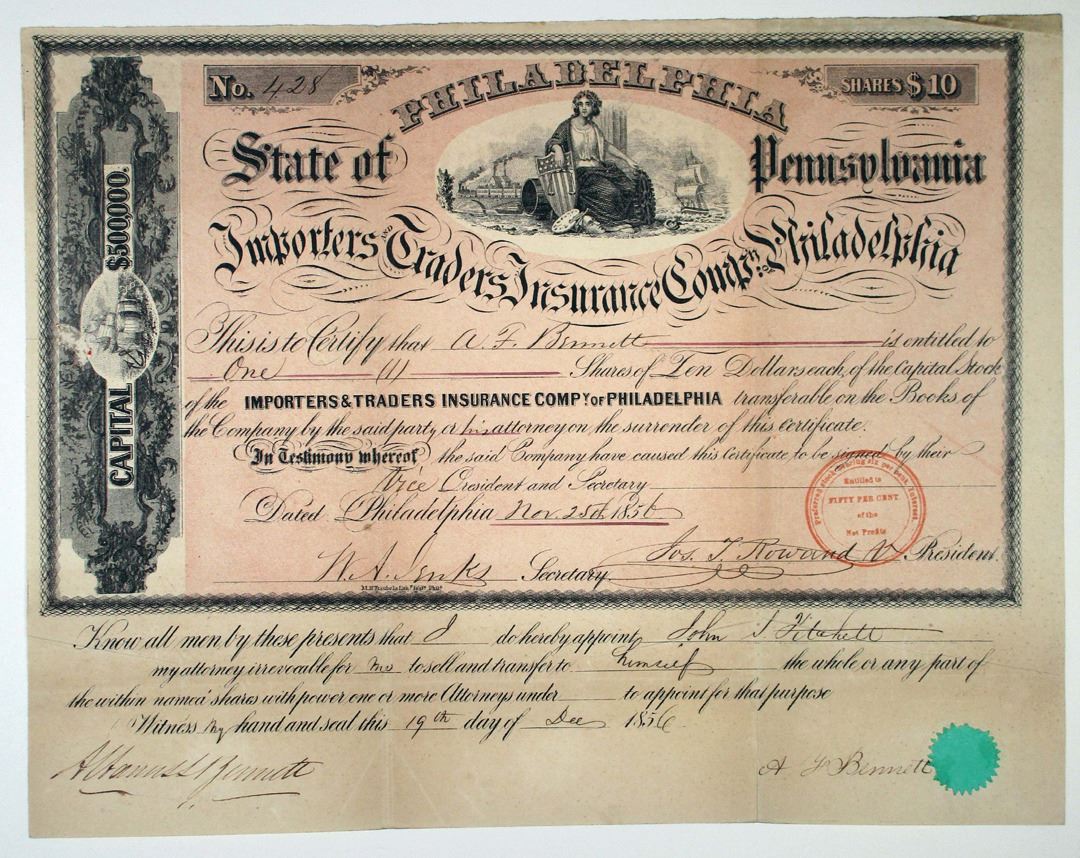 No. 428
PHILADELPHIA
SHARES $10
State of Pennsylvania
Importers AND Traders Insurance Compy: of Philadelphia
CAPITAL $500,000.
This is to Certify that A. F. Bennett is entitled to
One (1) Shares of Ten Dollars each, of the Capital Stock
of the IMPORTERS & TRADERS INSURANCE COMPY OF PHILADELPHIA transferable on the Books of
the Company by the said party, or his attorney on the surrender of this certificate.
In Testimony whereof the said Company have caused this Certificate to be signed by their
Vice President and Secretary
Dated Philadelphia Nov. 25th 1856
Preferred stock bearing six per cent. Interest.
Entitled to
FIFTY PER CENT
of the
Net Profits
W. A. Jenks Secretary. Jos. T. Rowand V. President.
Know all men by these presents that I do hereby appoint John S Fitchett
my attorney irrevocable for me to sell and transfer to himself the whole or any part of
the within named shares with power one or more Attorneys under to appoint for that purpose
Witness My hand and seal this 19th day of Dec 1856
Bennett
A F Bennett